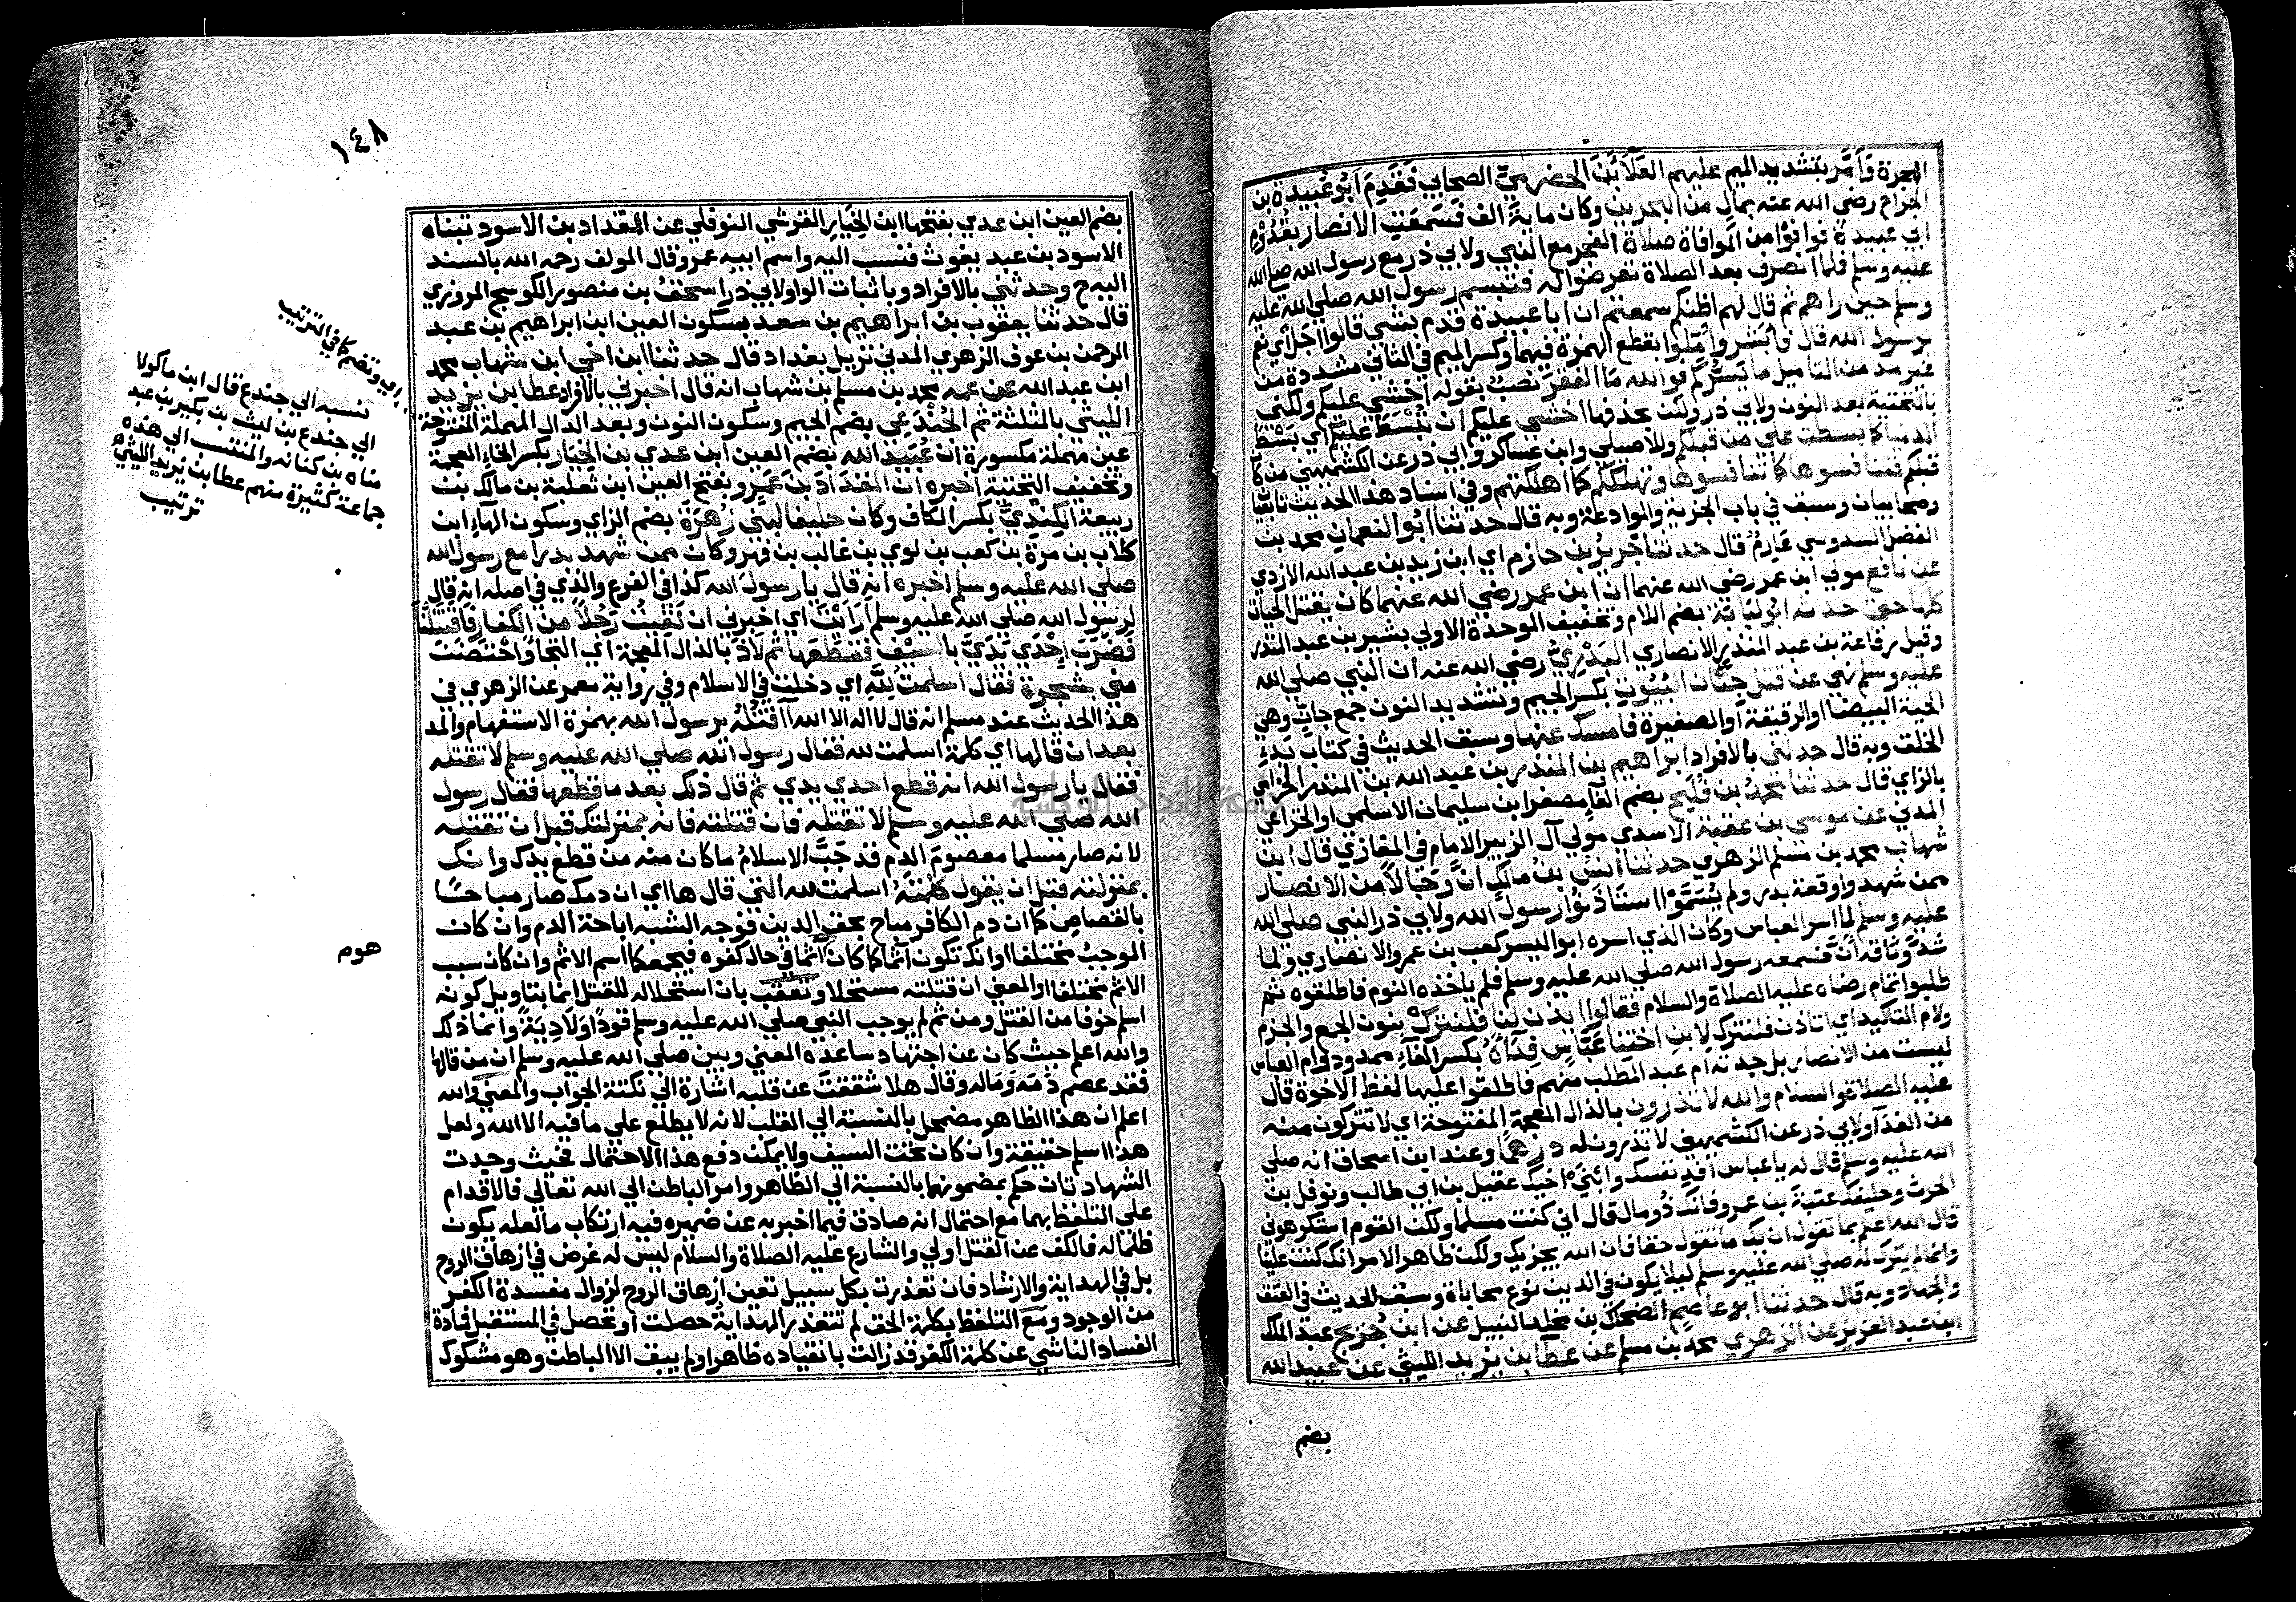 الهجرة وَأمَّر بتشديد الميم عليهم العَلَاءَ بْنَ الحضرميّ الصحابي فَقَدِمَ ابُو عُبَيدة بن
الجراح رضي الله عنه بمالٍ من البحرين وكان ماية الف فَسَمِعَتِ الانصار بقُدُوْمِ
ابي عبيدة فوافَوْا من الموافاة صلاة الفجر مع النبي ولابي ذر مع رسول الله صلي الله
عليه وسلم فلما انصرف بعد الصلاة تعرضوا له فتبسم رسول الله صلي الله عليه
وسلم حين راهم ثم قال لهم اظنكم سمعتم ان ابا عبيدة قدم بشي قالوا اجل اي نعم
يرسول الله قال فابشروا وامّلوا بقطع الهمزة فيهما وكسر الميم في الثاني مشددة من
غير مد من التاميل ما يسُرُّكم فوالله مَا الفقرَ نصبٌ بقوله اخشي عليكم ولكني
بالتحتية بعد النون ولابي ذر ولكن بحذفها اخشي عليكم ان تُبْسَطَ عليكم اي بَسْطَ
الدنيا كما بسطت علي من قبلكم وللاصيلي وابن عساكر وابي ذر عن الكشميهني من كان
قبلكم فتنافسوها كما تنافسوها وتهلككم كما اهلكتهم وفي اسناد هذا الحديث تابعيان
وصحابيان وسبق في باب الجزية والموادعة وبه قال حدثنا ابُو النعمان محمد بن
الفضل السدوسي عَارِمٌ قال حدثنا جَريرُ بن حازم اي ابن زيد بن عبد الله الازدي
عن نافع مولي ابن عمر رضي الله عنهما ان ابن عمر رضي الله عنهما كان يقتل الحيات
كلها حتي حدثه ابو لبابة بضم اللام وتخفيف الموحدة الاولي بشير بن عبد المنذر
وقيل رفاعة بن عبد المنذر الانصاري البَدْرِيُّ رضي الله عنه ان النبي صلي الله
عليه وسلم نهي عن قتل جِنَّان البُيُوْتِ بكسر الجيم وتشديد النون جمع جانٍّ وهي
الحية البيضا او الرقيقة او الصغيرة فامسك عنها وسبق الحديث في كتاب بَدْءِ
الخلق وبه قال حدثني بالافراد ابراهيم بن المنذر بن عبد الله بن المنذر الحزامي
بالزاي قال حدثنا محمدُ بن فُلَيح بضم الفآءِ مصغرا ابن سليمان الاسلمي او الخزاعي
المدني عن موسي بن عقبة الاسدي مولي آل الزبير الامام في المغازي قال ابن
شهاب محمد بن مسلم الزهري حدثنا انسُ بنُ مالكٍ انَّ رِجَالاً من الانصار
ممن شهد وقعة بدر ولم يُسَمَّوْا استَأذَنُوا رسول الله ولابي ذر النبي صلي الله
عليه وسلم لما اسر العباس وكان الذي اسره ابو اليسر كعب بن عمرو الانصاري ولما
شدَّ وثاقه اَنَّ فسمعه رسول الله صلي الله عليه وسلم فلم ياخذه النوم فاطلقوه ثم
طلبوا تمام رضاه عليه الصلاة والسلام فقالوا ايذن لنا فلنترك بنون الجمع والجزم
ولام التاكيد اي ان تاذن فلنترك لابن اختِنا عَبَّاسٍ فِدَآءَهُ بكسر الفآءِ ممدود وام العباس
ليست من الانصار بل جدته ام عبد المطلب منهم فاطلقوا عليها لفظ الاخوة قال
عليه الصلاة والسلام والله لا تذرون بالذال المعجمة المفتوحة اي لا تتركون منه
من الفدآ ولابي ذر عن الكشميهني لا تذرون له درهمًا وعند ابن اسحاق انه صلي
الله عليه وسلم قال له يا عباس افدِ نفسك وابنَيْ اخيك عقيل بن ابي طالب ونوفل بن
الحرث وحليفك عتبة بن عمرو فانك ذُو مال قال اني كنت مسلما ولكن القوم استكرهوني
قال الله اعلم بما تقول ان يك ما تقول حقا فان الله يجزيك ولكن ظاهر الامر انك كنت علينا
وانما لم يترك له صلي الله عليه وسلم ليلا يكون في الدين نوع محاباة وسبق الحديث في العتق
والجهاد وبه قال حدثنا ابو عاصم الضحاك بن مخلد النبيل عن ابن جُرَيج عبد الملك
ابن عبد العزيز عن الزهري محمد بن مسلم عن عطا بن يزيد الليثي عن عبيد الله
بضم
١٤٨
بضم العين ابن عدي بفتحها ابن الخِيَار القرشي النوفلي عن المقداد بن الاسود تبناه
الاسود بن عبد يغوث فنسب اليه واسم ابيه عمرو قال المولف رحمه الله بالسند
اليه ح وحدثني بالافراد وباثبات الواو لابي ذر اسحقُ بن منصور الكوسج المروزي
قال حدثنا يعقوب بن ابراهيم بن سعد بسكون العين ابن ابراهيم بن عبد
الرحمن بن عوف الزهري المدني نزيل بغداد قال حدثنا ابن اخي ابن شهاب محمد
ابن عبد الله عن عمه محمد بن مسلم بن شهاب انه قال اخبرني بالافراد عطا بن يزيد
الليثي بالمثلثة ثم الجُنْدَعِي بضم الجيم وسكون النون وبعد الدال المهملة المفتوحة
عين مهملة مكسورة ان عُبَيد الله بضم العين ابن عدي بن الخِيَار بكسر الخاءِ المعجمة
وتخفيف التحتية اخبره ان المقدَادَ بنَ عَمرٍو بفتح العين ابن ثعلبة بن مالك بن
ربيعة الكِنديَّ بكسر الكاف وكان حليفا لبني زُهرَةَ بضم الزاي وسكون الهاءِ ابن
كلاب بن مرة بن كعب بن لوي بن غالب بن فهر وكان ممن شهد بدرا مع رسول الله
صلي الله عليه وسلم اخبره انه قال يا رسول الله كذا في الفرع والذي في اصله انه قال
لرسول الله صلي الله عليه وسلم أرَأيْتَ اي اخبرني ان لَقِيْتُ رَجُلاً من الكفار فَاقْتَتَلْنَا
فَضَرَبَ اِحْدَي يَدَيَّ بالسَّيْفِ فقطعها ثم لَاذَ بالذال المعجمة اي التجا واحتضنت
مني بشجرة فقال اسلمتُ لِلَّه اي دخلت في الاسلام وفي رواية معمر عن الزهري في
هذا الحديث عند مسلم انه قال لا اله الا الله آاَقْتُلُهُ يرسول الله بهمزة الاستفهام والمد
بعد ان قالها اي كلمة اسلمت لله فقال رسول الله صلي الله عليه وسلم لا تقتله
فقال يا رسول الله انه قطع احدي يدي ثم قال ذلك بعد ما قطعها فقال رسول
الله صلي الله عليه وسلم لا تقتله فان قتلته فانه بمنزلتك قبل ان تقتله
لانه صار مسلما معصومَ الدم قد جَبَّ الاسلامُ ما كان منه من قطع يدك وانك
بمنزلته قبل ان يقول كلمتَهُ اسلمت لله التي قال ها اي ان دمك صار مباحًا
بالقصاص كما ان دم الكافر مباح بحق الدين فوجه الشبه اباحة الدم وان كان
الموجبُ مختلفا او انك تكون آثما كما كان آثما في حال كفره فيجمعكما اسم الاثم وان كان سبب
الاثم مختلفا او المعني ان قتلته مستحلا وتعقب بان استحلاله للقتل انما بتاويل كونه
اسلم خوفا من القتل ومن ثم لم يوجب النبي صلي الله عليه وسلم قودًا ولا دِيَةً وانما ذلك
والله اعلم حيث كان عن اجتهاد ساعده المعني وبين صلي الله عليه وسلم ان من قالها
فقد عصم دَمَه وَمَاله وقال هلا شققتَ عن قلبه اشارة الي نكتة الجواب والمعني والله
اعلم ان هذا الظاهر مضمحل بالنسبة الي القلب لانه لا يطلع علي ما فيه الا الله ولعل
هذا اسلم حقيقة وان كان تحت السيف ولا يمكن دفع هذا الاحتمال فحيث وجدت
الشهادتان حكم بمضمونهما بالنسبة الي الظاهر وامر الباطن الي الله تعالي فالاقدام
علي التلفظ بهما مع احتمال انه صادق فيما اخبر به عن ضميره فيه ارتكاب ما لعله يكون
ظلما له فالكف عن القتل اولي والشارع عليه الصلاة والسلام ليس له غرض في ازهاق الروح
بل في الهداية والارشاد فان تعذرت بكل سبيل تعين ازهاق الروح لزوال مفسدة الكفر
من الوجود ومع التلفظ بكلمة الحق لم تتعذر الهداية حصلت او تحصل في المستقبل فمادة
الفساد الناشي عن كلمة الكفر قد زالت بانقياده ظاهرا ولم يبق الا الباطن وهو مشكوك
اي وتضم كما في الترتيب
نسبه الي جندع قال ابن ماكولا
الي جندع بن ليث بن بكير بن عبد
مناه بن كنانه والمنتسب الي هذه
جماعة كثيرة منهم عطا بن يزيد الليثي
ترتيب
هوم
جامعة النجاح الوطنية